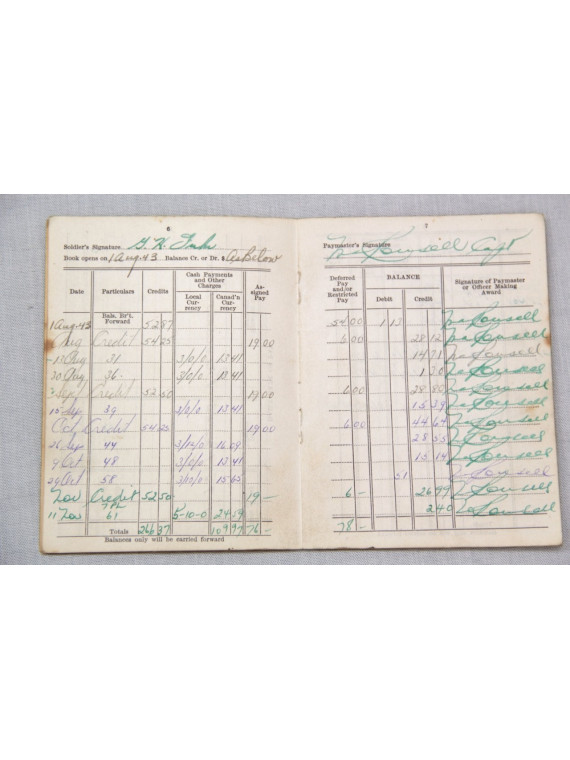 6
Soldier's Signature
Book opens on 1 Aug 43 Balance Cr. or Dr. $ As Below
Date Particulars Credits Cash Payments and Other Charges As-signed Pay
Local Cur-rency Canad'n Cur-rency
Bals. Br't. Forward
1 Aug. 43 52 87
Aug Credit 54 25 19 00
Aug 31 3/0/0 13 41
30 Aug 36 3/0/0 13 41
Sept Credit 52 50 19 00
15 Sep 39 3/0/0 13 41
Oct Credit 54 25 19 00
26 Sep 44 16 09
9 Oct 48 3/0/0 13 41
29 Oct 58 15 65
Nov Credit 52 50 19 —
11 Nov 61 5-10-0 24 59
Totals 266 37 109 97 76 —
Balances only will be carried forward
7
Paymaster's Signature Capt
Deferred Pay and/or Restricted Pay BALANCE Signature of Paymaster or Officer Making Award
Debit Credit
54 00 1 13
6 00 28 12
14 71
1 30
6 00 28 80
15 39
6 00 44 64
28 55
15 14
51
6 — 26 99
2 40
78 —